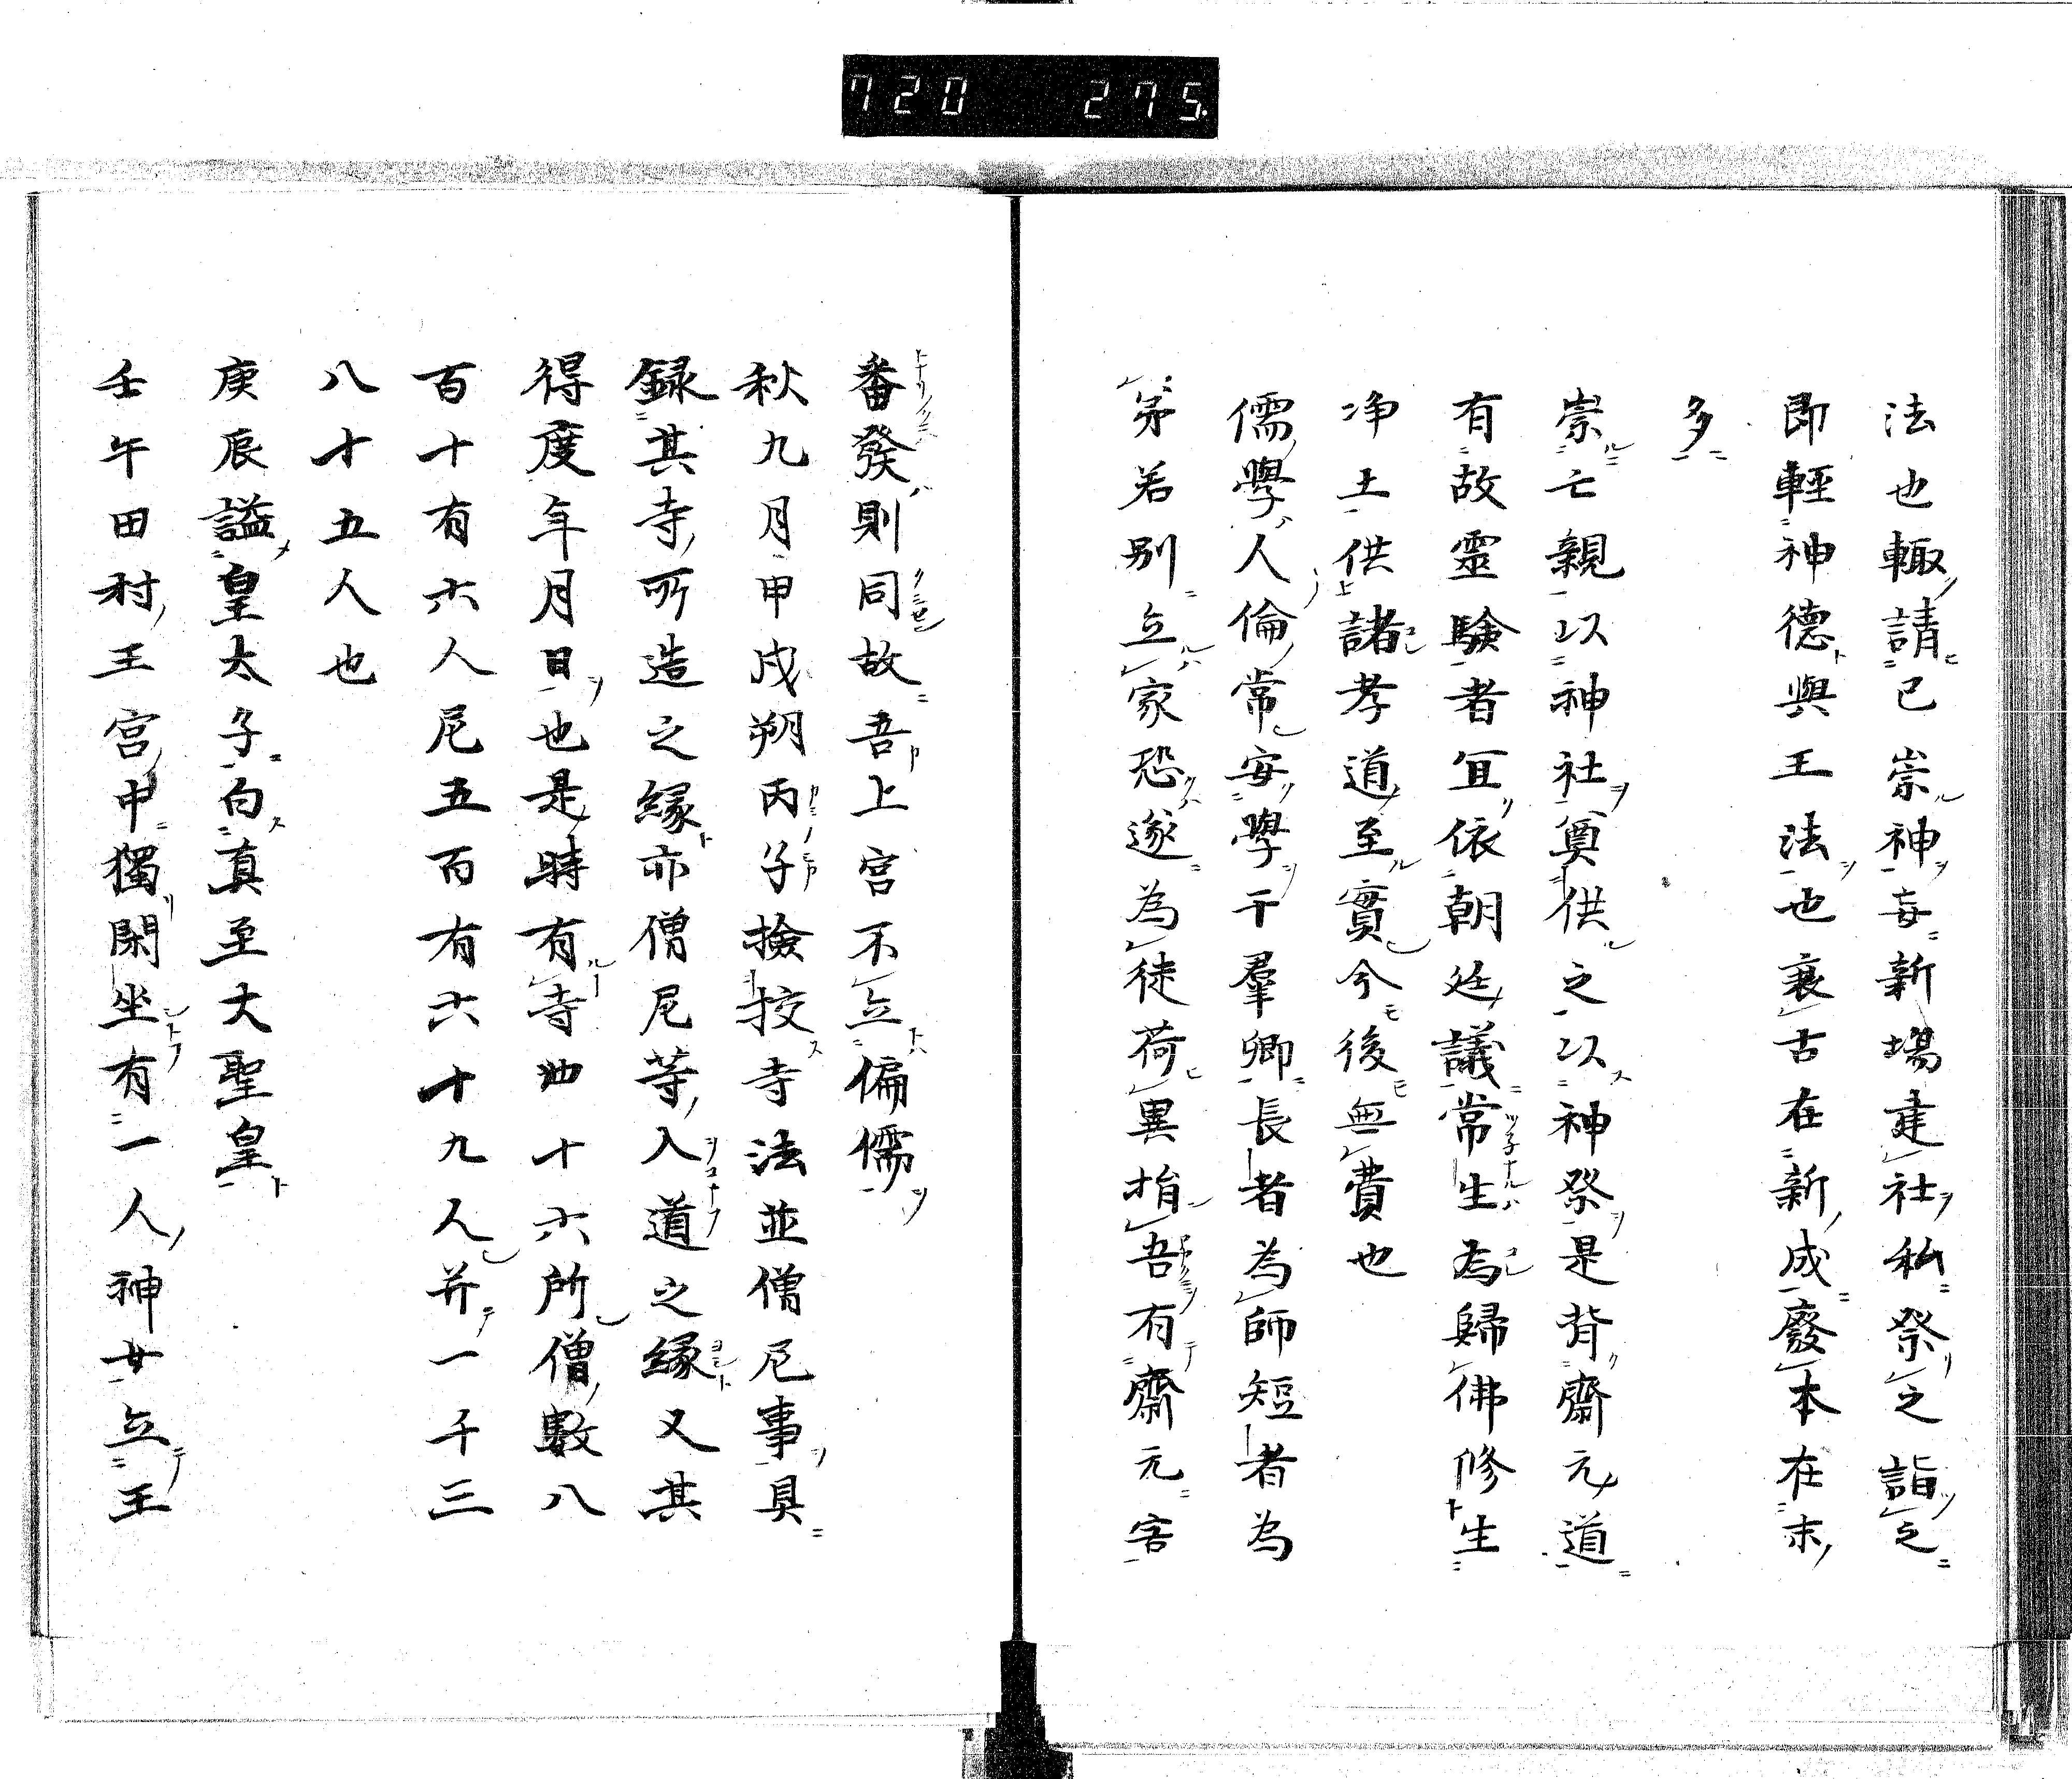 720 275
法也輙請已崇神妄新場建社私祭之詣之
即輕神德與王法也襄古在新成廢本在末
多
崇亡親以神社奠供之以神祭是背齋元道
有故靈驗者宜依朝廷議常生為歸佛修生
净土供諸孝道至實今後無費也
儒學人倫常安學干羣卿長者為師短者為
弟若別立家恐遂為徒荷異㫖吾有齋元害
番發則同故吾上宮不立偏儒
秋九月甲戌朔丙子撿挍寺法並僧尼事具
録其寺所造之縁亦僧尼等入道之縁又其
得度年月日也是時有寺卌十六所僧數八
百十有六人尼五百有六十九人并一千三
八十五人也
庚辰謚皇太子白真至大聖皇
壬午田村王宮中獨閑坐有一人神女立王